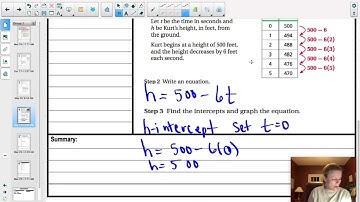 Let t be the time in seconds and
h be Kurt's height, in feet, from
the ground.
Kurt begins at a height of 500 feet,
and the height decreases by 6 feet
each second.
0 500
1 494
2 488
3 482
4 476
5 470
500 – 6
500 – 6(2)
500 – 6(3)
500 – 6(4)
500 – 6(5)
Step 2 Write an equation.
h = 500 - 6t
Step 3 Find the intercepts and graph the equation.
h-intercept set t=0
Summary:
h = 500 - 6(0)
h = 500